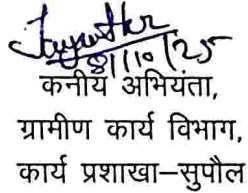 कनीय अभियंता,
ग्रामीण कार्य विभाग,
कार्य प्रशाखा–सुपौल